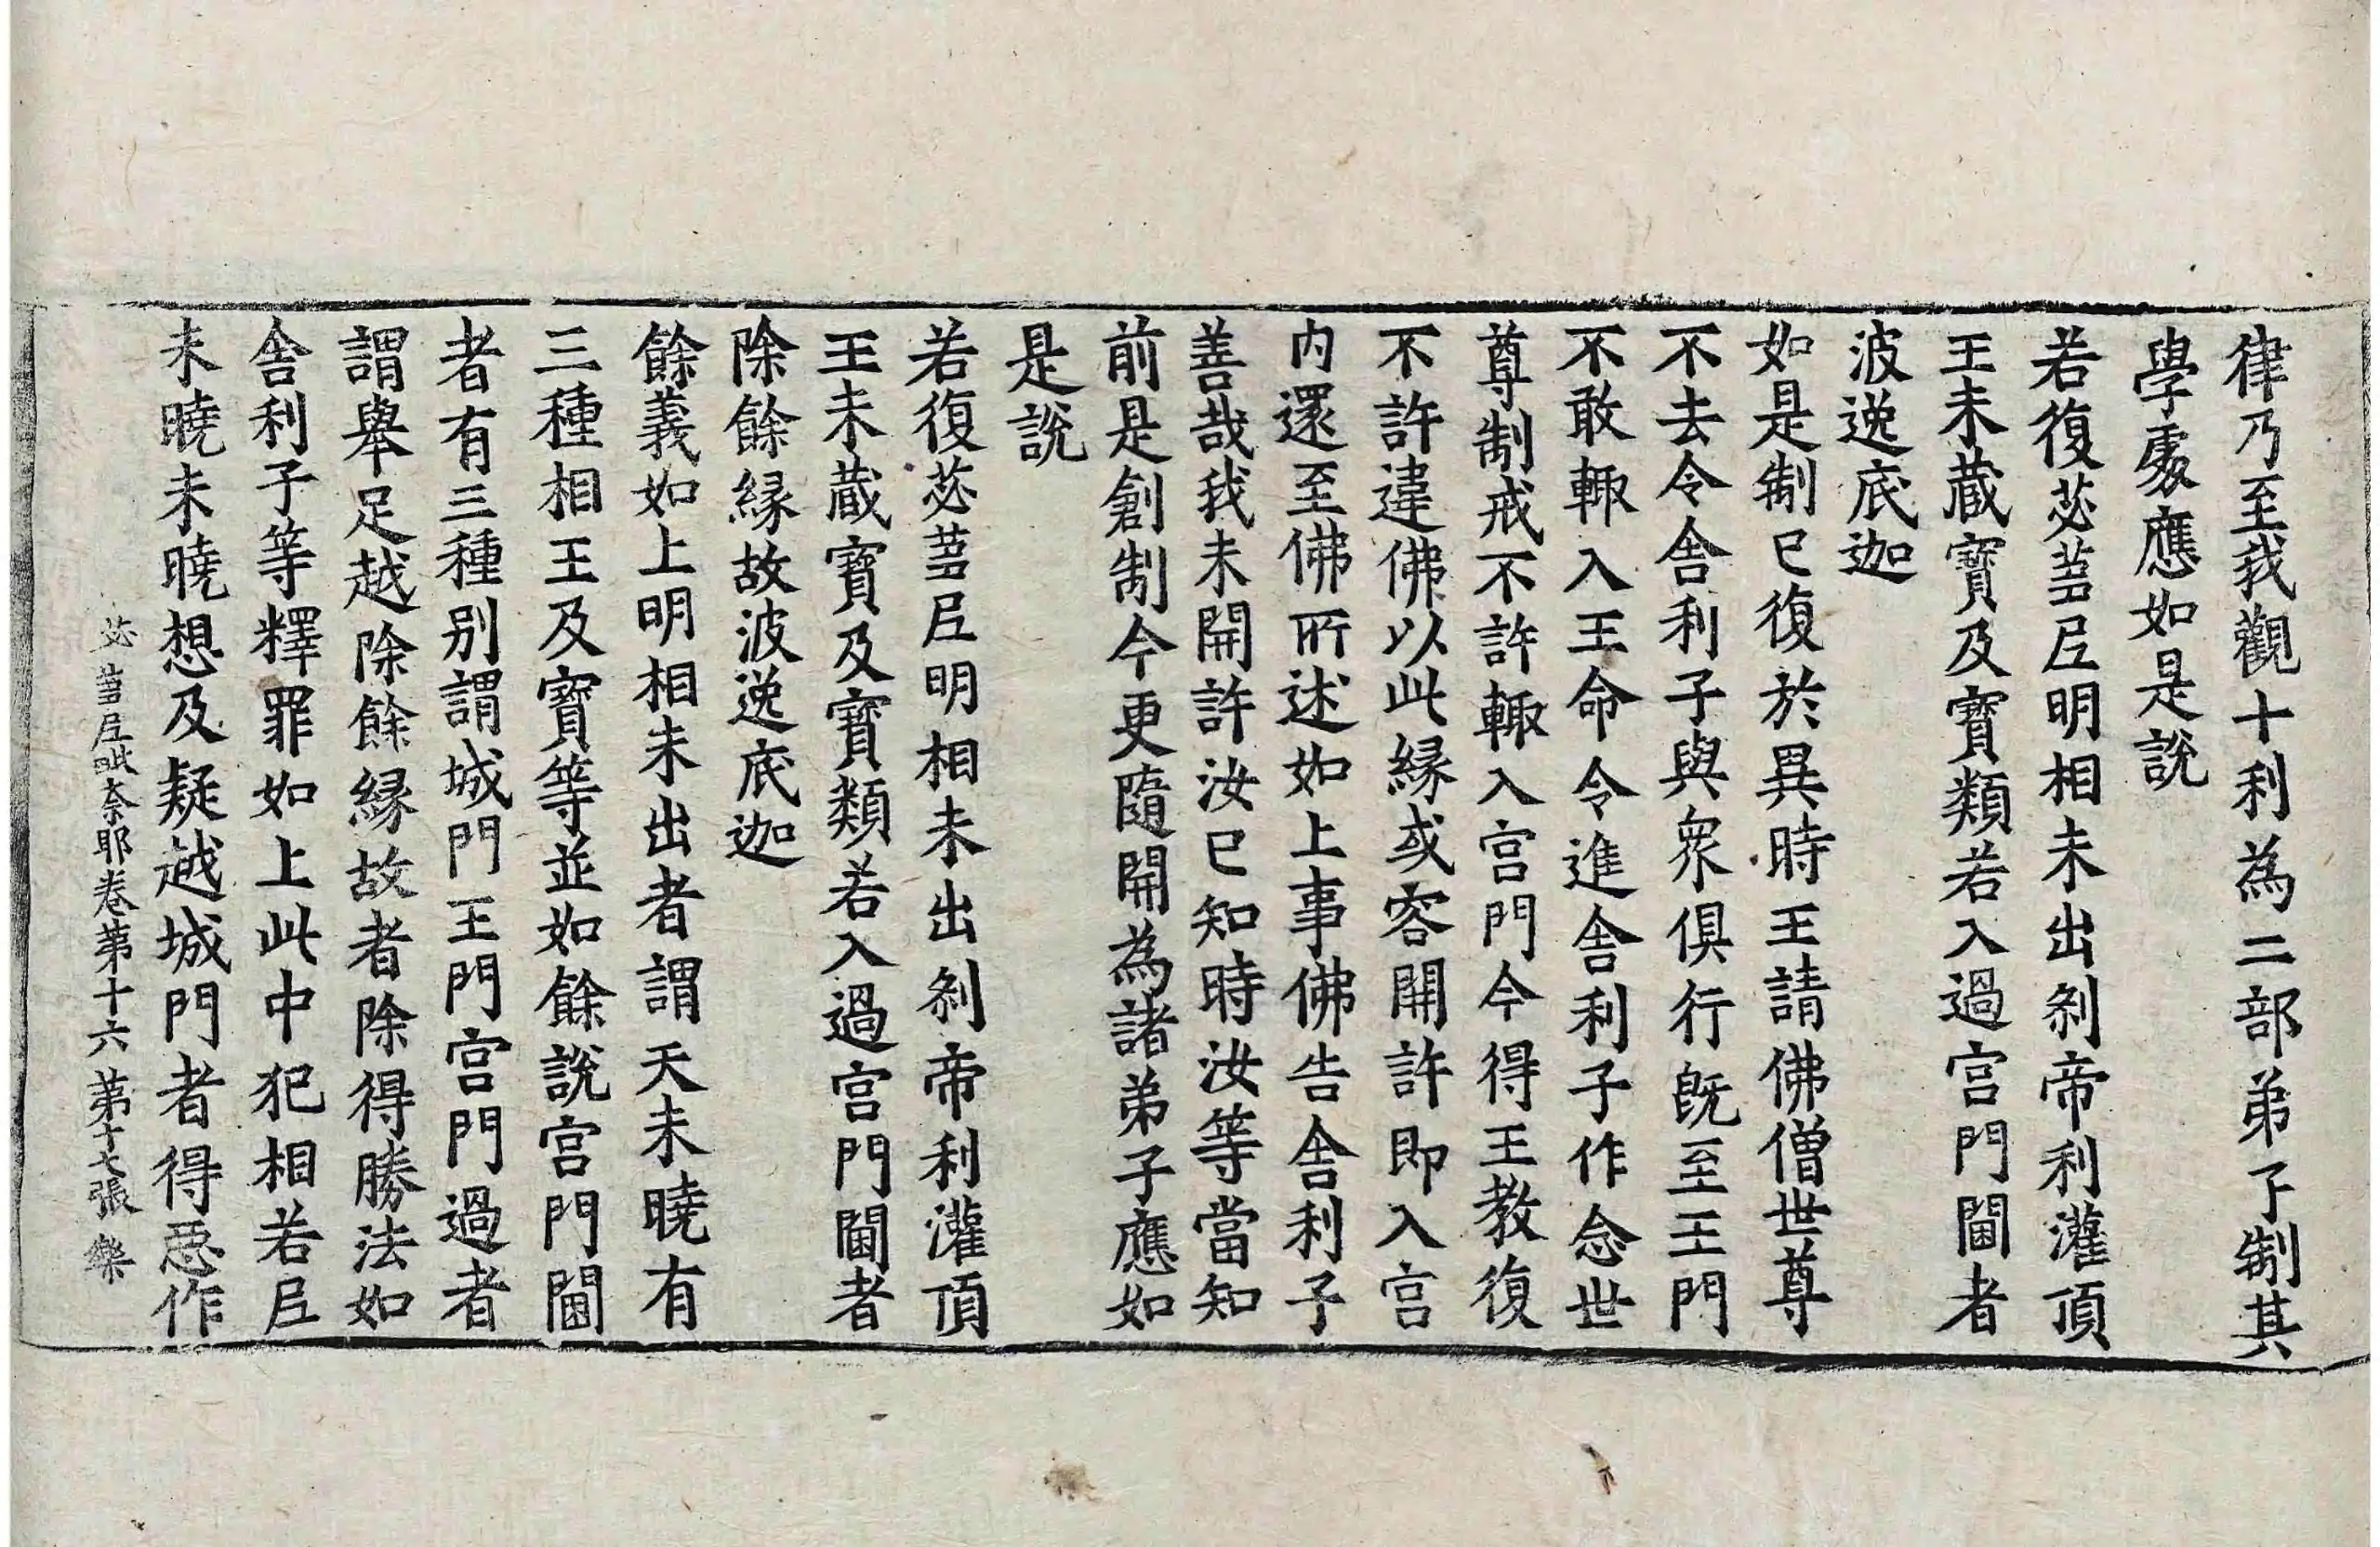 律乃至我觀十利為二部弟子制其
學處應如是說
若復苾蒭尼明相未出剎帝利灌頂
王未藏寶及寶類若入過宮門閫者
波逸底迦
如是制已復於異時王請佛僧世尊
不去令舍利子與眾俱行既至王門
不敢輙入王命令進舍利子作念世
尊制戒不許輙入宮門今得王教復
不許違佛以此縁或容開許即入宮
内還至佛所述如上事佛告舍利子
善哉我未開許汝已知時汝等當知
前是創制今更隨開為諸弟子應如
是說
若復苾蒭尼明相未出剎帝利灌頂
王未藏寶及寶類若入過宮門閫者
除餘縁故波逸底迦
餘義如上明相未出者謂天未曉有
三種相王及寶等並如餘說宮門閫
者有三種別謂城門王門宮門過者
謂舉足越除餘縁故者除得勝法如
舍利子等釋罪如上此中犯相若尼
未曉未曉想及疑越城門者得惡作
苾蒭尼毗奈耶卷第十六 第十七張 樂